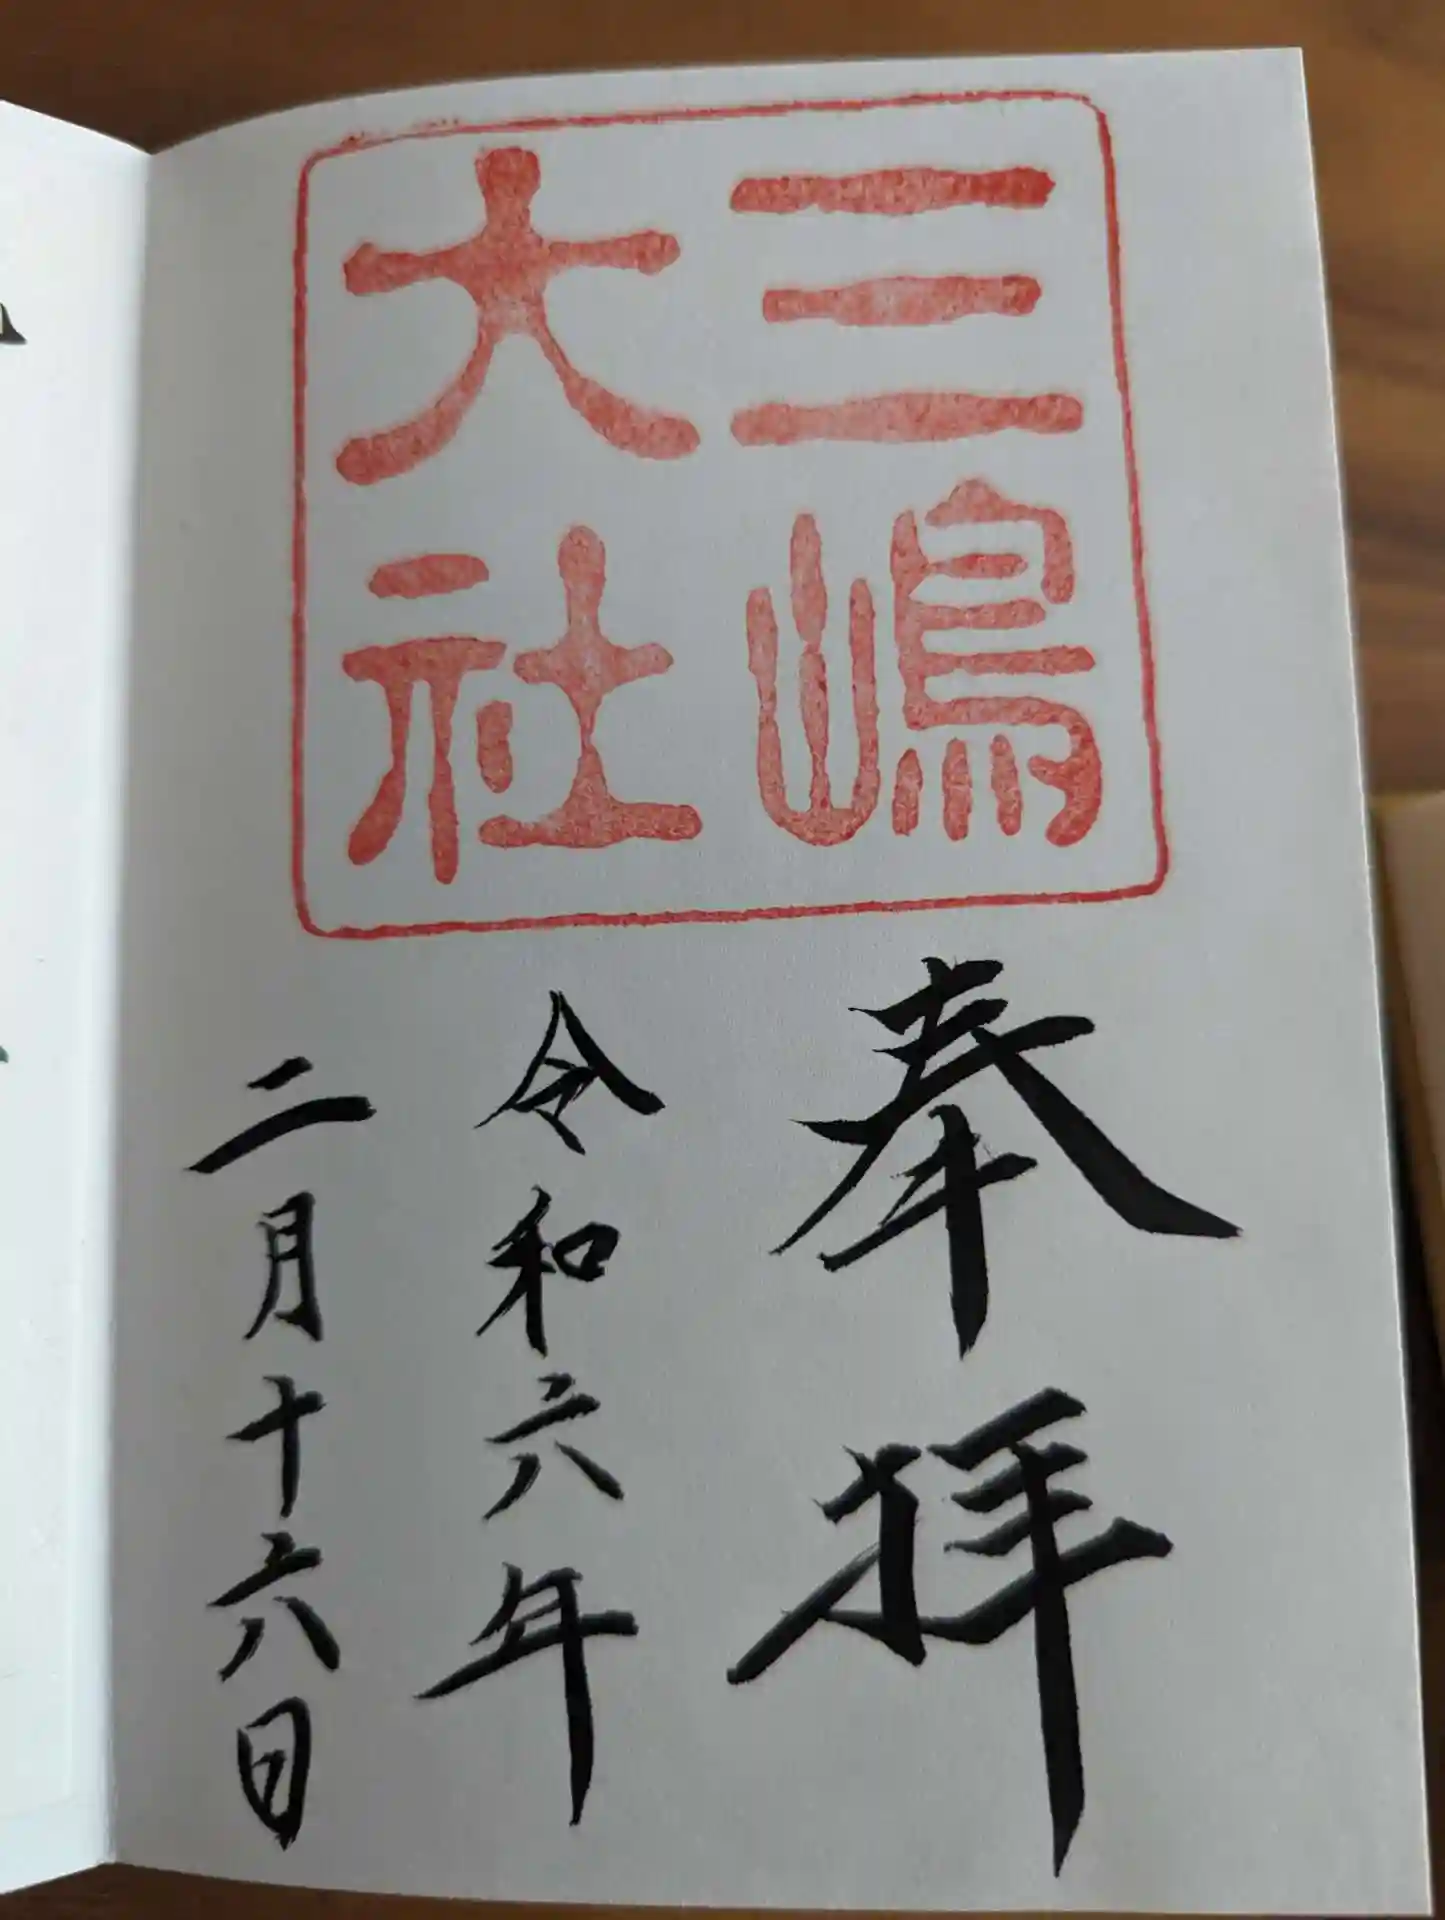 三嶋
大社
奉拝
令和六年
二月十六日